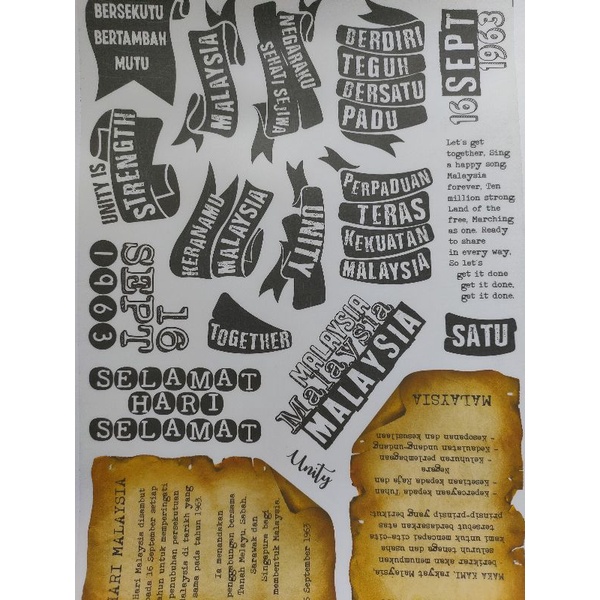 BERSEKUTU
BERTAMBAH
MUTU
MALAYSIA
NEGARAKU
SEHATI SEJIWA
BERDIRI
TEGUH
BERSATU
PADU
16
SEPT
1963
UNITY IS
STRENGTH
KERANAMU
MALAYSIA
UNITY
PERPADUAN
TERAS
KEKUATAN
MALAYSIA
Let's get
together, Sing
a happy song,
Malaysia
forever, Ten
million strong
Land of the
free, Marching
as one. Ready
to share
in every way,
So let's
get it done
get it done,
get it done.
16
SEPT
1963
TOGETHER
MALAYSIA
Malaysia
MALAYSIA
SATU
SELAMAT
HARI
SELAMAT
Unity
HARI MALAYSIA
Hari Malaysia disambut
pada 16 September setiap
tahun untuk memperingati
penubuhan persekutuan
Malaysia di tarikh yang
sama pada tahun 1963.
Ia menandakan
penggabungan bersama
Tanah Melayu, Sabah,
Sarawak dan
Singapura bagi
membentuk Malaysia.
September 1963
MAKA KAMI, rakyat Malaysia,
berikrar akan menumpukan
seluruh tenaga dan usaha
kami untuk mencapai cita-cita
tersebut berdasarkan atas
prinsip-prinsip yang berikut:
Kepercayaan kepada Tuhan
- Kesetiaan kepada Raja dan
Negara
- Keluhuran perlembagaan
- Kedaulatan undang-undang
- Kesopanan dan kesusilaan
MALAYSIA